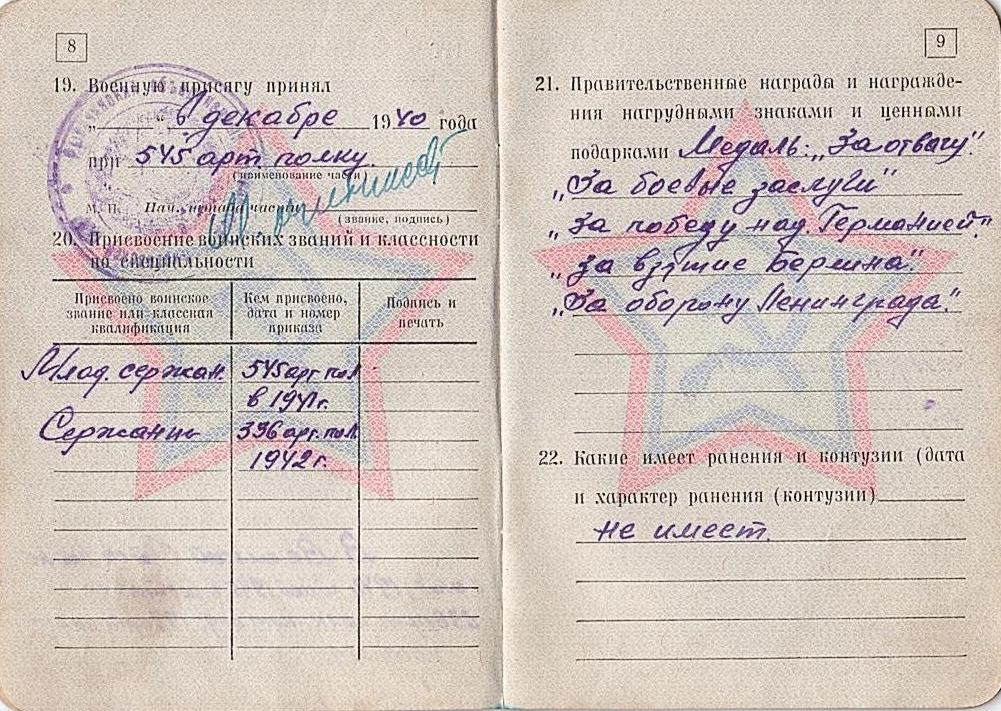 8
19. Военную присягу принял
„ “ в декабре 1940 года
при 545 арт полку.
(наименование части)
М. П. Нач. штаба части
(звание, подпись)
20. Присвоение воинских званий и классности
по специальности
Присвоено воинское звание или классная квалификация
Кем присвоено, дата и номер приказа
Подпись и печать
Млад. сержан. 545 арт. пол.
в 1941 г.
Сержант 396 арт. пол.
1942 г.
9
21. Правительственные награды и награжде-
ния нагрудными знаками и ценными
подарками Медаль: „За отвагу“.
„За боевые заслуги“
„За победу над Германией.“
„За взятие Берлина“.
„За оборону Ленинграда“.
22. Какие имеет ранения и контузии (дата
и характер ранения (контузии)
не имеет.